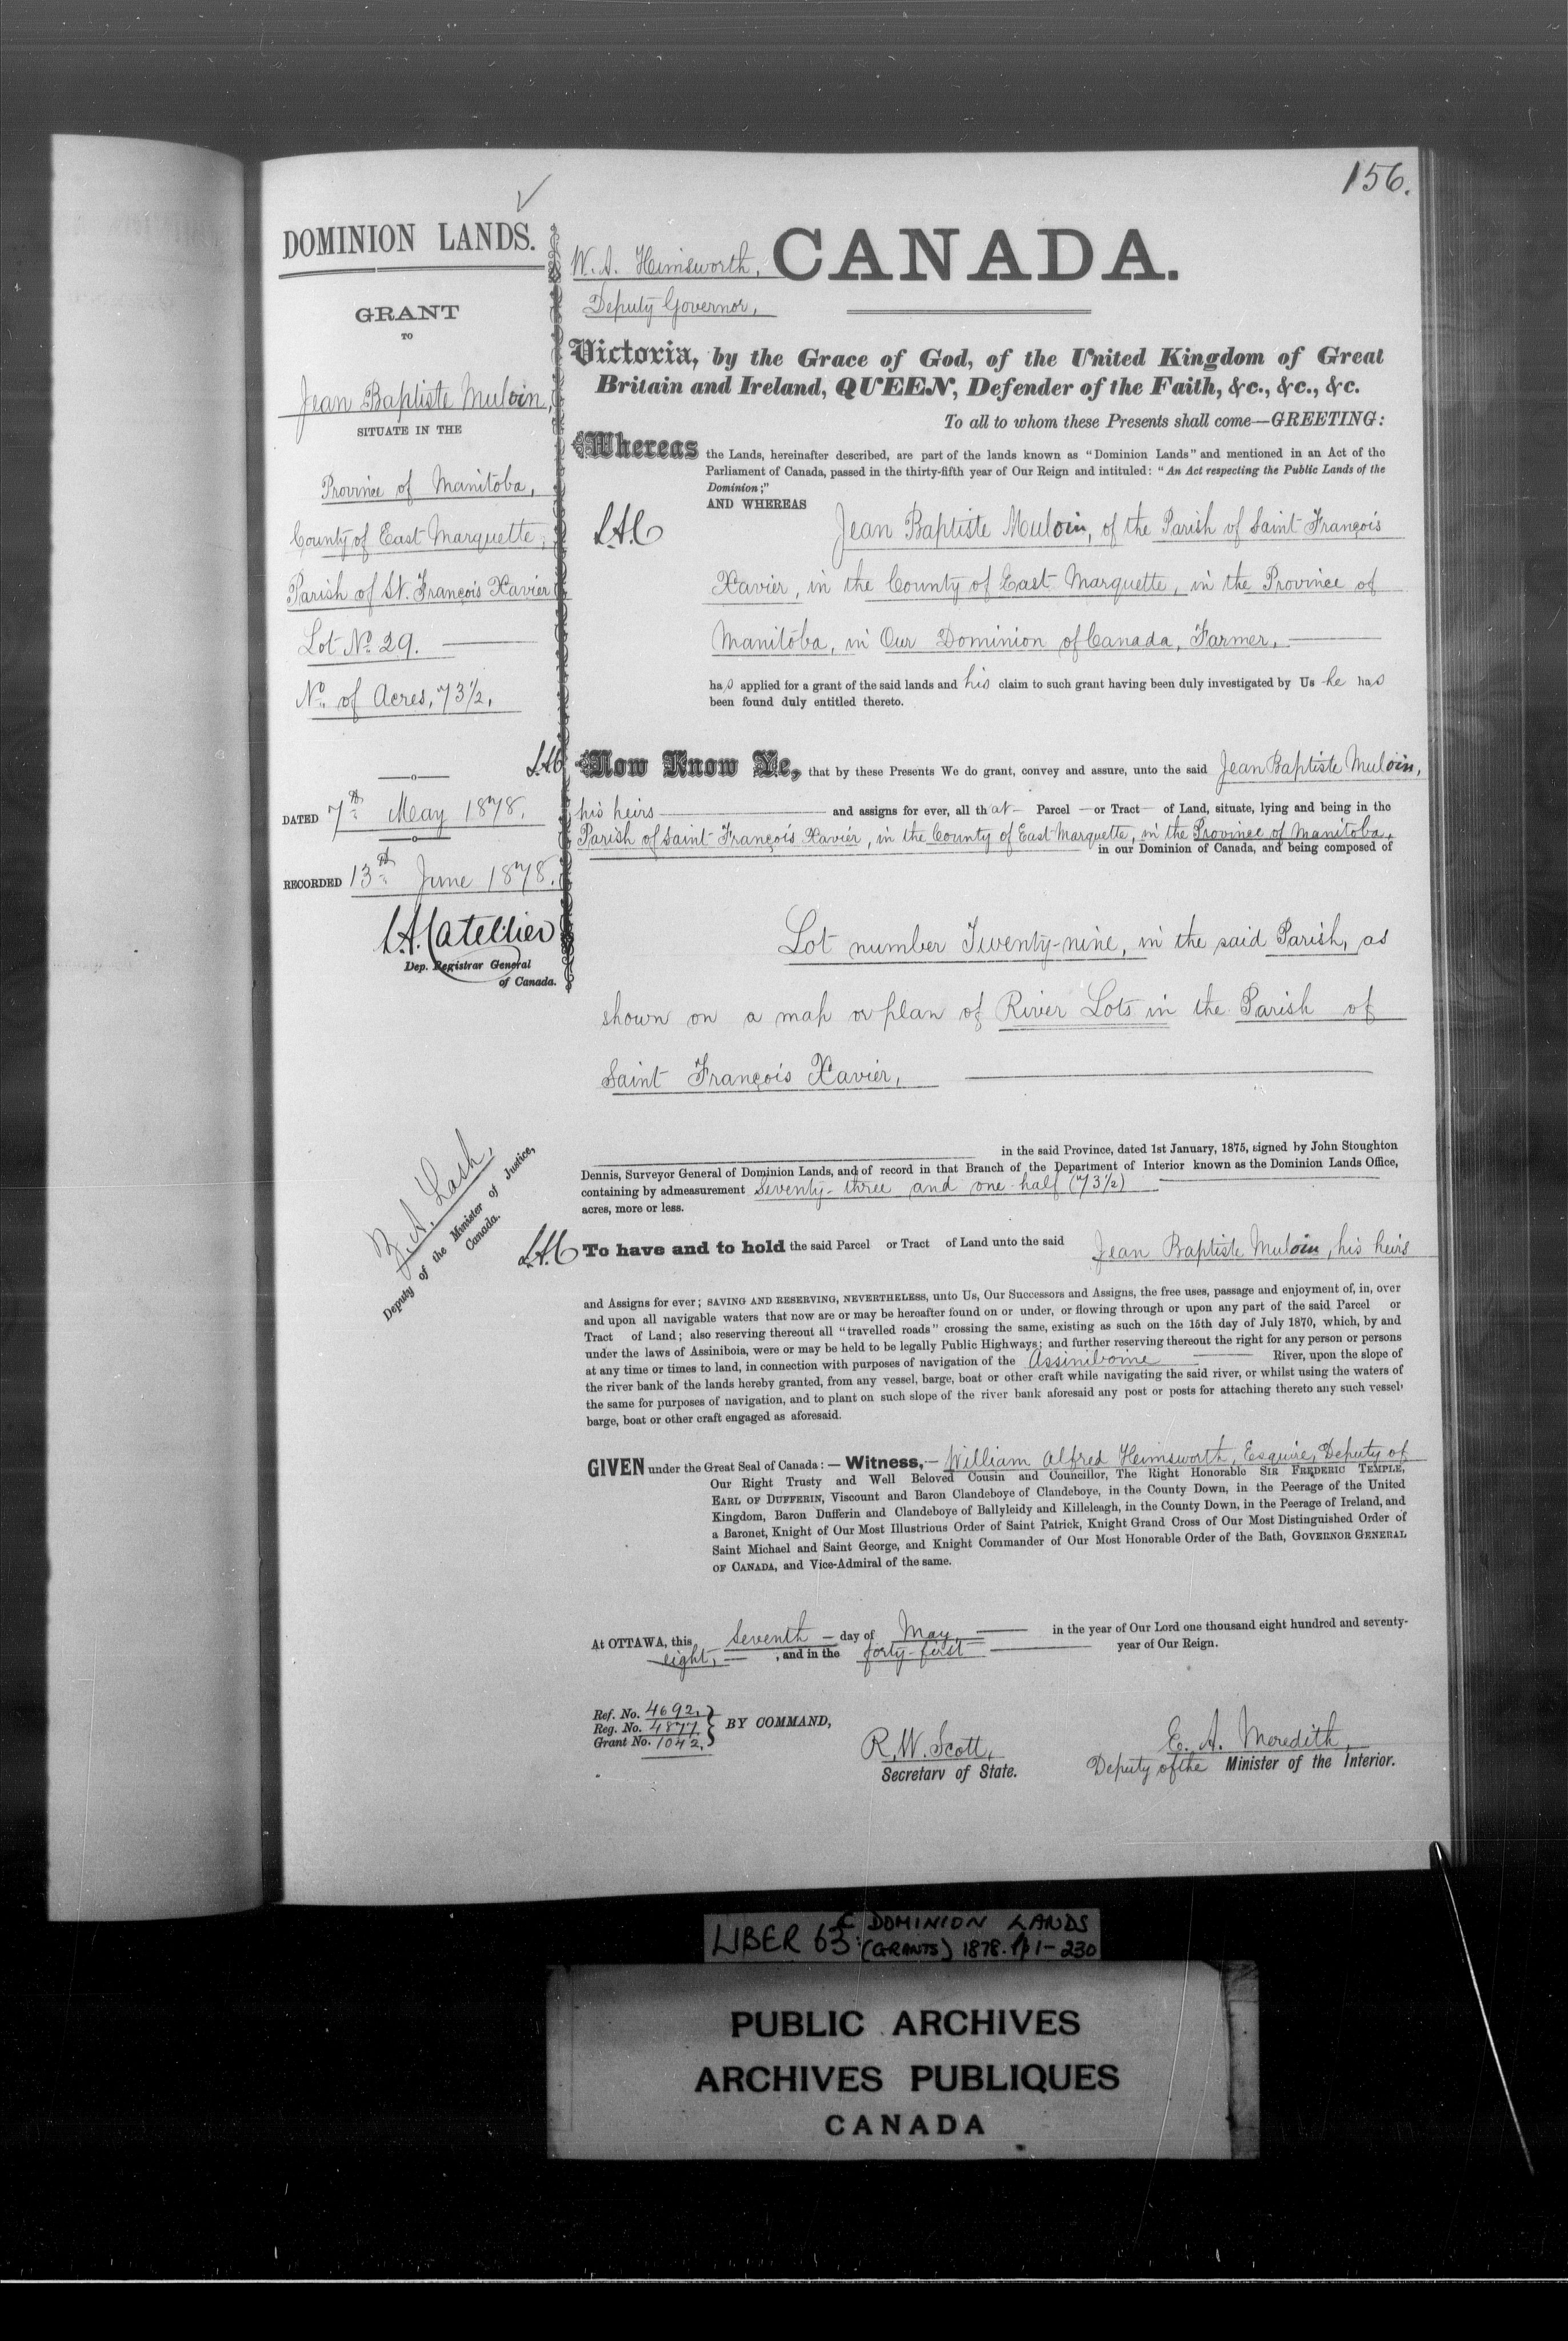 156.
DOMINION LANDS.
GRANT
TO
Jean Baptiste Muloin,
SITUATE IN THE
Province of Manitoba,
County of East Marquette,
Parish of St. François Xavier
Lot No. 29.
No. of Acres, 73½,
L.A.C
DATED 7th May 1878.
RECORDED 13th June 1878.
L.A. Catellier
Dep. Registrar General
of Canada.
Z. A. Lash,
Deputy of the Minister of Justice,
Canada.
W. A. Himsworth,
Deputy Governor,
CANADA.
Victoria, by the Grace of God, of the United Kingdom of Great
Britain and Ireland, QUEEN, Defender of the Faith, &c., &c., &c.
To all to whom these Presents shall come—GREETING:
Whereas the Lands, hereinafter described, are part of the lands known as "Dominion Lands" and mentioned in an Act of the
Parliament of Canada, passed in the thirty-fifth year of Our Reign and intituled: "An Act respecting the Public Lands of the
Dominion;"
AND WHEREAS
L.A.C Jean Baptiste Muloin, of the Parish of Saint François
Xavier, in the County of East Marquette, in the Province of
Manitoba, in Our Dominion of Canada, Farmer,
has applied for a grant of the said lands and his claim to such grant having been duly investigated by Us he has
been found duly entitled thereto.
Now Know Ye, that by these Presents We do grant, convey and assure, unto the said Jean Baptiste Muloin,
his heirs and assigns for ever, all that Parcel or Tract of Land, situate, lying and being in the
Parish of Saint François Xavier, in the County of East Marquette, in the Province of Manitoba,
in our Dominion of Canada, and being composed of
Lot number Twenty-nine, in the said Parish, as
shown on a map or plan of River Lots in the Parish of
Saint François Xavier,
in the said Province, dated 1st January, 1875, signed by John Stoughton
Dennis, Surveyor General of Dominion Lands, and of record in that Branch of the Department of Interior known as the Dominion Lands Office,
containing by admeasurement Seventy-three and one-half (73½)
acres, more or less.
L.A.C To have and to hold the said Parcel or Tract of Land unto the said Jean Baptiste Muloin, his heirs
and Assigns for ever; SAVING AND RESERVING, NEVERTHELESS, unto Us, Our Successors and Assigns, the free uses, passage and enjoyment of, in, over
and upon all navigable waters that now are or may be hereafter found on or under, or flowing through or upon any part of the said Parcel or
Tract of Land; also reserving thereout all "travelled roads" crossing the same, existing as such on the 15th day of July 1870, which, by and
under the laws of Assiniboia, were or may be held to be legally Public Highways; and further reserving thereout the right for any person or persons
at any time or times to land, in connection with purposes of navigation of the Assiniboine River, upon the slope of
the river bank of the lands hereby granted, from any vessel, barge, boat or other craft while navigating the said river, or whilst using the waters of
the same for purposes of navigation, and to plant on such slope of the river bank aforesaid any post or posts for attaching thereto any such vessel,
barge, boat or other craft engaged as aforesaid.
GIVEN under the Great Seal of Canada:—Witness,—William Alfred Himsworth, Esquire, Deputy of
Our Right Trusty and Well Beloved Cousin and Councillor, The Right Honorable SIR FREDERIC TEMPLE,
EARL OF DUFFERIN, Viscount and Baron Clandeboye of Clandeboye, in the County Down, in the Peerage of the United
Kingdom, Baron Dufferin and Clandeboye of Ballyleidy and Killeleagh, in the County Down, in the Peerage of Ireland, and
a Baronet, Knight of Our Most Illustrious Order of Saint Patrick, Knight Grand Cross of Our Most Distinguished Order of
Saint Michael and Saint George, and Knight Commander of Our Most Honorable Order of the Bath, GOVERNOR GENERAL
OF CANADA, and Vice-Admiral of the same.
At OTTAWA, this Seventh day of May, in the year of Our Lord one thousand eight hundred and seventy-
eight, , and in the forty-first year of Our Reign.
Ref. No. 4692,
Reg. No. 4877
Grant No. 1042,
BY COMMAND,
R. W. Scott,
Secretary of State.
E. A. Meredith,
Deputy of the Minister of the Interior.
LIBER 63C: DOMINION LANDS
(GRANTS) 1878. pp 1-230
PUBLIC ARCHIVES
ARCHIVES PUBLIQUES
CANADA